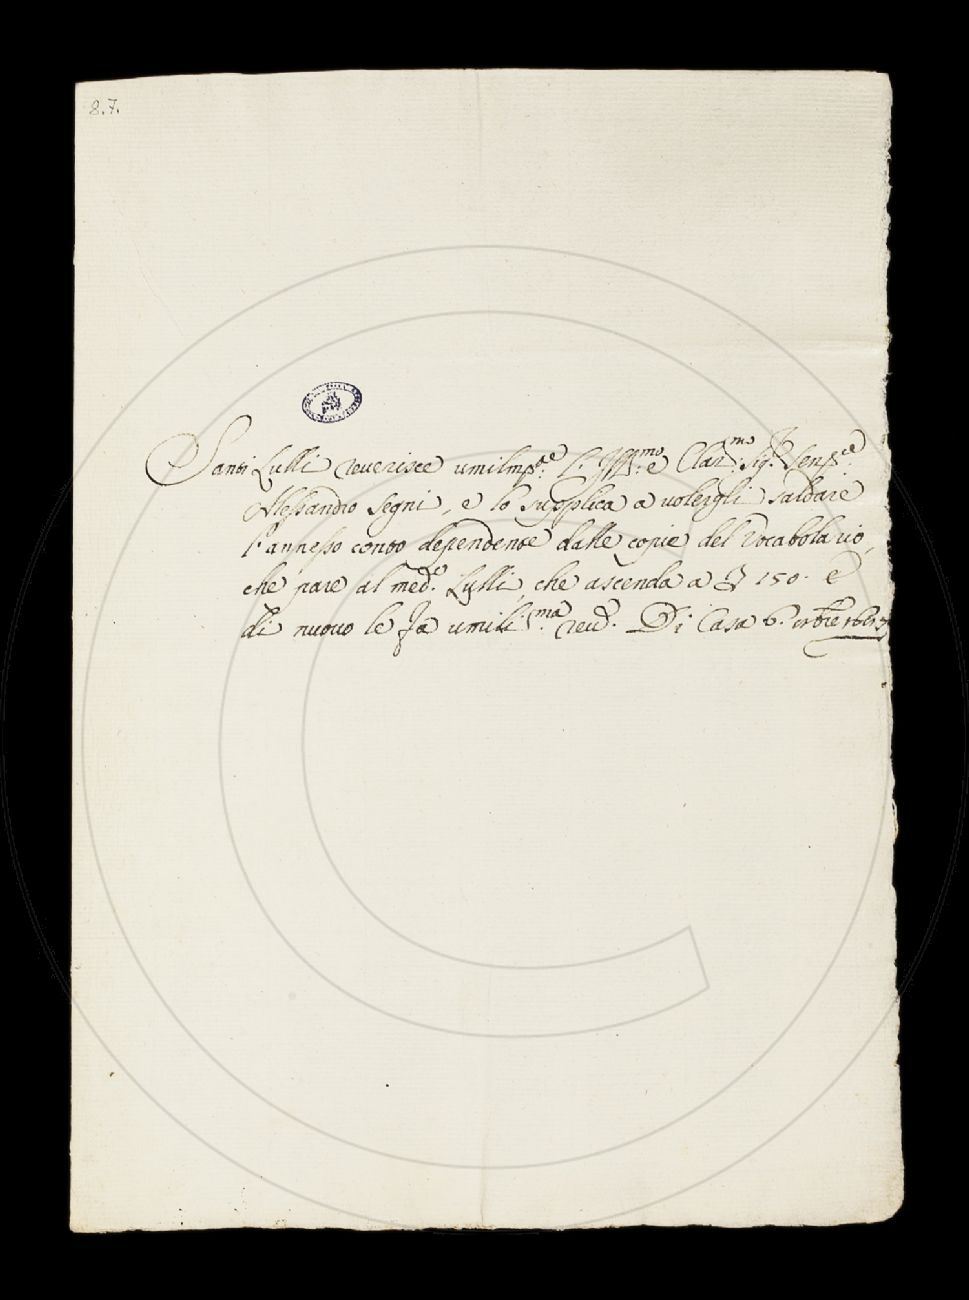 8.7.
Santi Lulli reverisce umilmᵗᵉ l'Illᵐᵒ e Clarᵐᵒ Sig.ʳ Senʳᵉ
Alessandro Segni, e lo supplica a volergli saldare
l'annesso conto dependente dalle copie del Vocabolario,
che pare al med.º Lulli, che ascenda a 150. e
di nuovo le fa umiliᵐᵃ rev.ᵃ Di Casa 6.